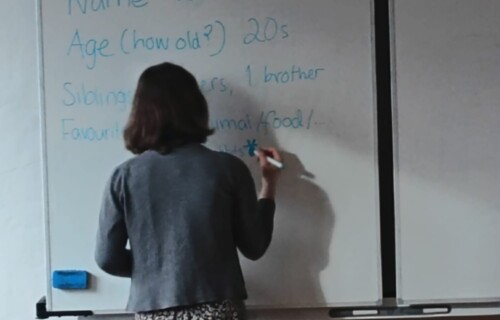 Name
Age (how old?) 20s
Siblings ers, 1 brother
Favourit imal/food/...